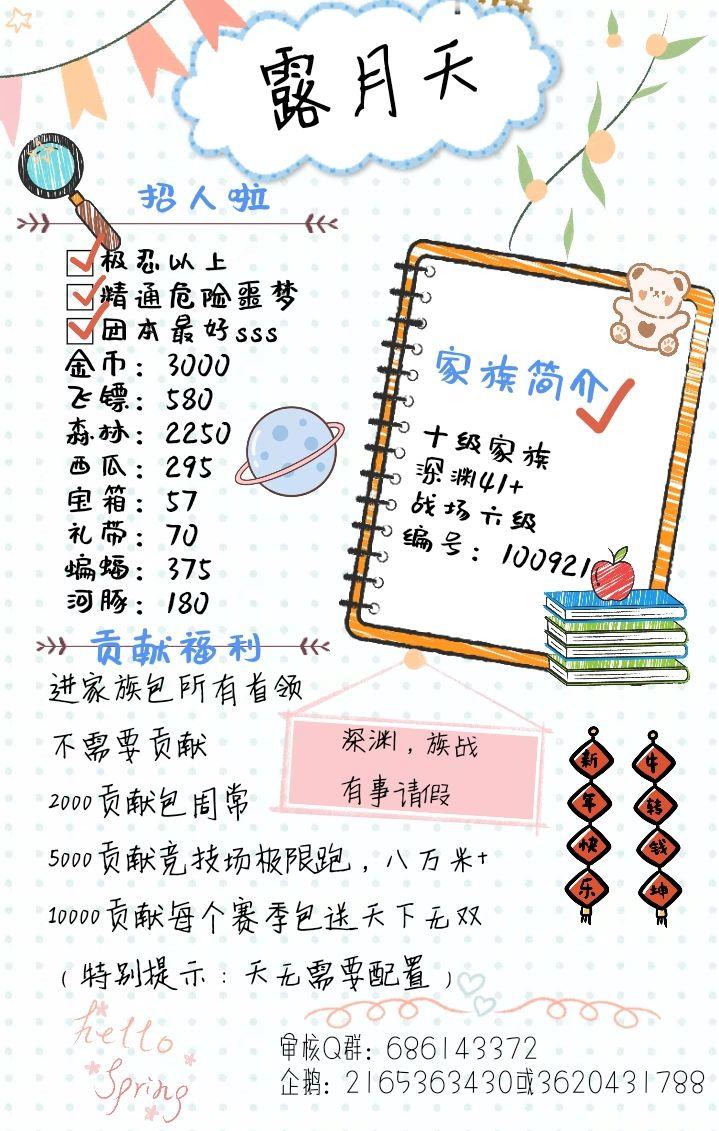 露月天
招人啦
极忍以上
精通危险噩梦
团本最好sss
金币：3000
飞镖：580
森林：2250
西瓜：295
宝箱：57
礼带：70
蝙蝠：375
河豚：180
家族简介
十级家族
深渊41+
战场六级
编号：100921
贡献福利
进家族包所有首领
不需要贡献
2000贡献包周常
5000贡献竞技场极限跑，八万米+
10000贡献每个赛季包送天下无双
（特别提示：天无需要配置）
深渊，族战
有事请假
新年快乐
牛转钱坤
hello
Spring
审核Q群：686143372
企鹅：2165363430或3620431788